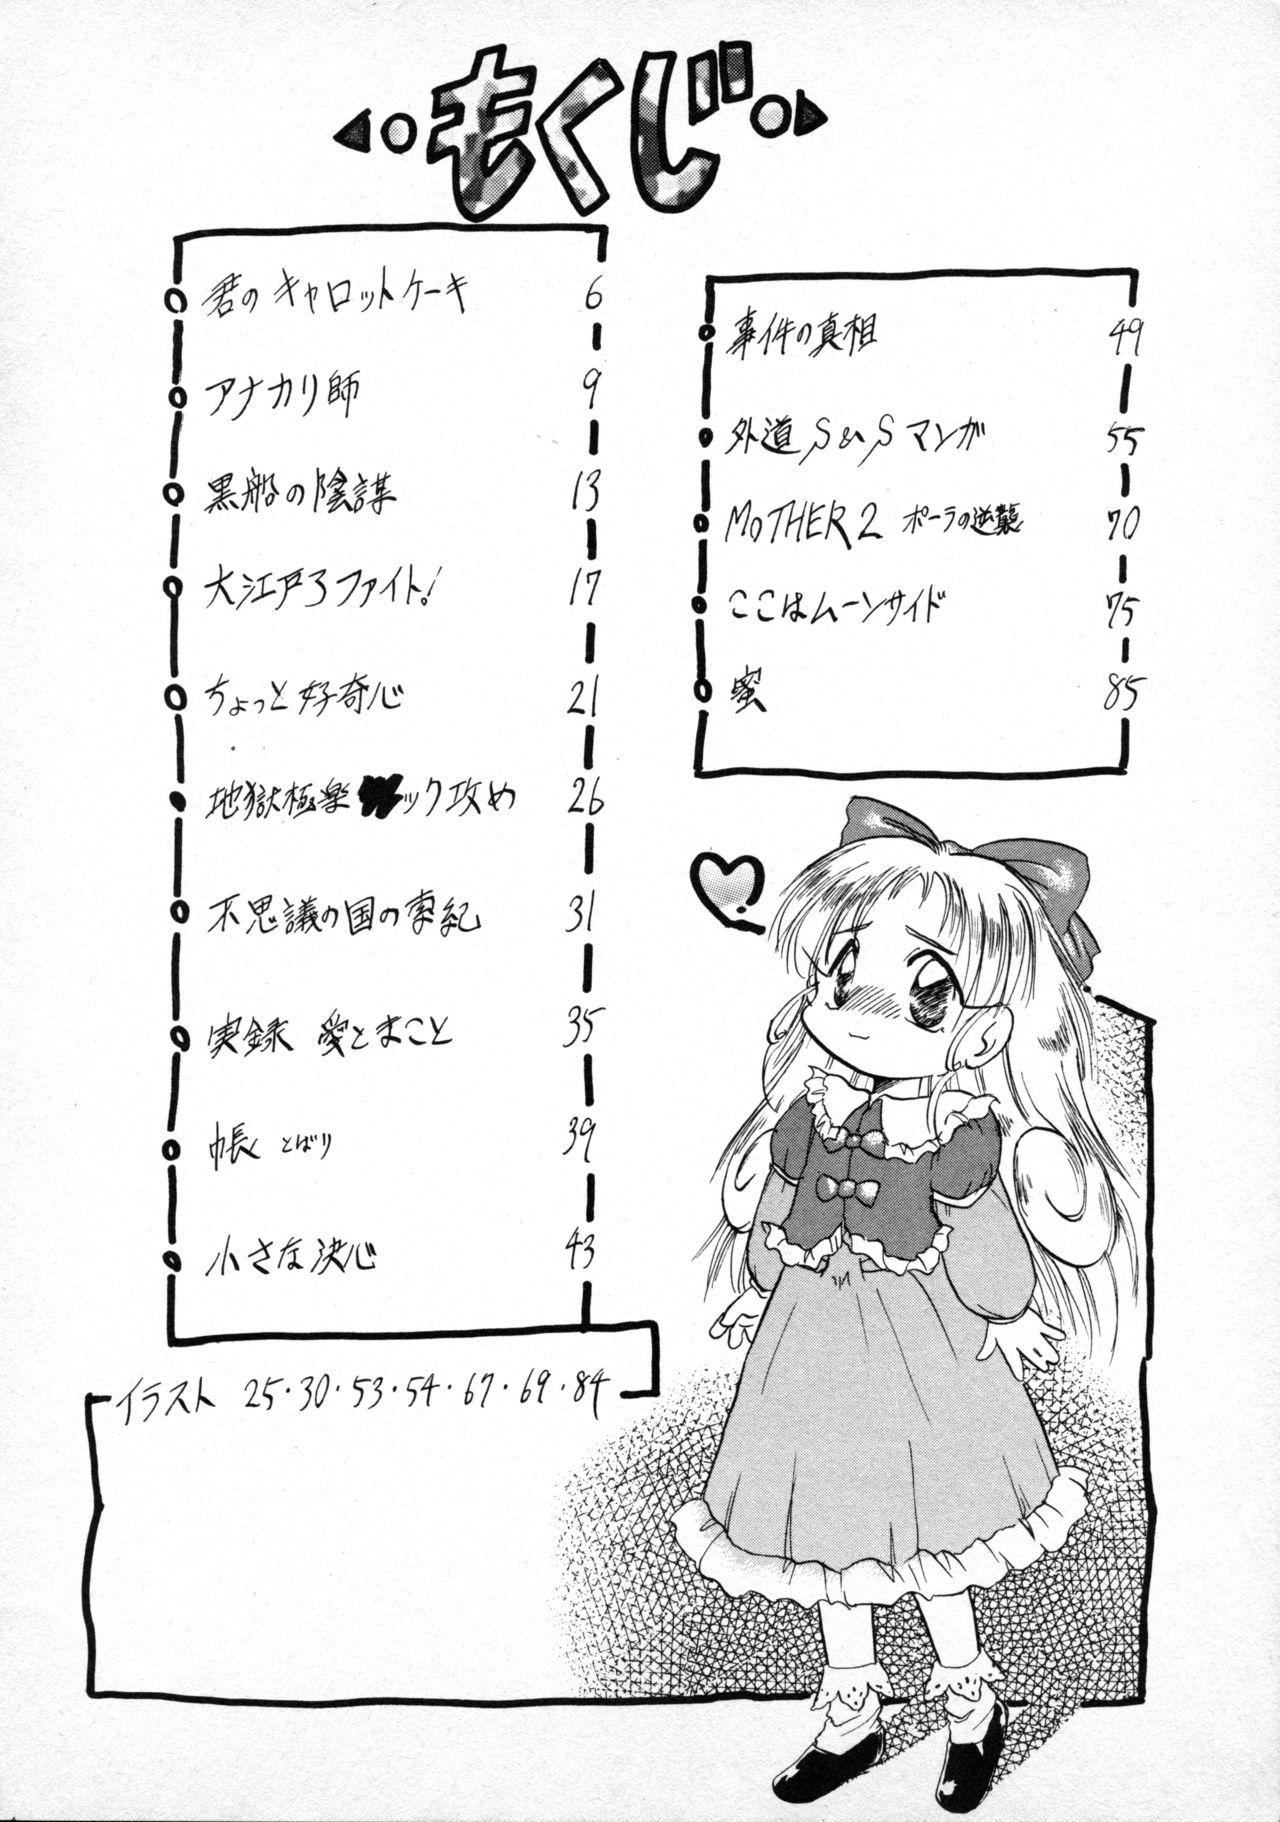 もくじ
君のキャロットケーキ 6
アナカリ師 9
黒船の陰謀 13
大江戸ろファイト! 17
ちょっと好奇心 21
地獄極楽 ック攻め 26
不思議の国の 紀 31
実録 愛とまこと 35
帳 とばり 39
小さな決心 43
イラスト 25・30・53・54・67・69・84
事件の真相 49
外道 S&S マンガ 55
MOTHER2 ポーラの逆襲 70
ここはムーンサイド 75
蜜 85